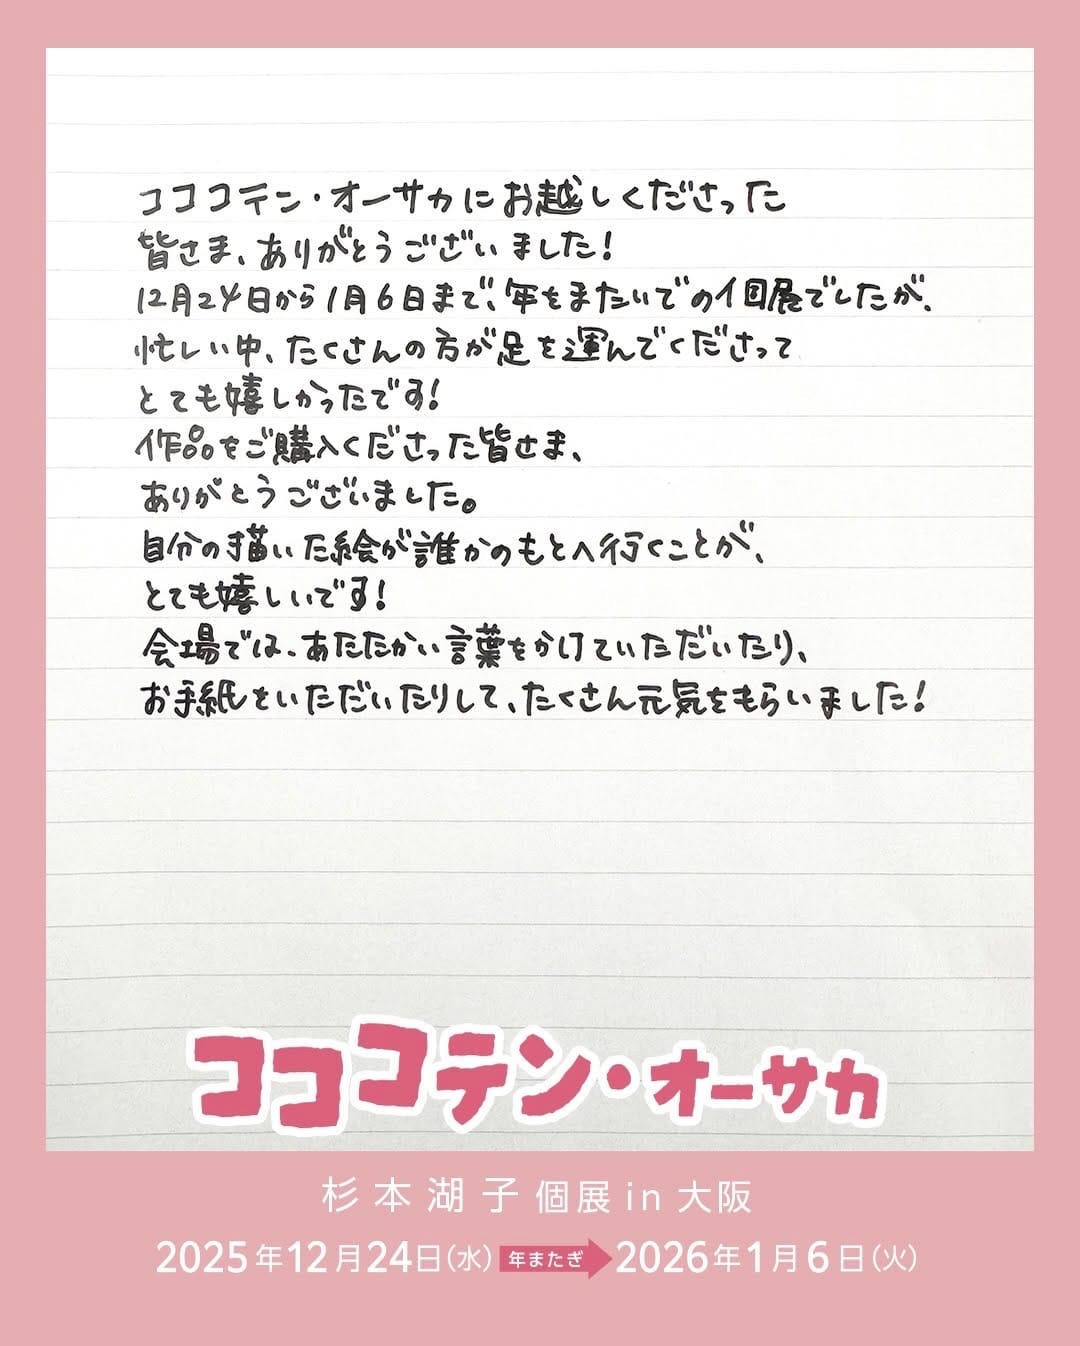 コココテン・オーサカにお越しくださった
皆さま、ありがとうございました!
12月24日から1月6日まで、年をまたいでの個展でしたが、
忙しい中、たくさんの方が足を運んでくださって
とても嬉しかったです!
作品をご購入くださった皆さま、
ありがとうございました。
自分の描いた絵が誰かのもとへ行くことが、
とても嬉しいです!
会場では、あたたかい言葉をかけていただいたり、
お手紙をいただいたりして、たくさん元気をもらいました!
コココテン・オーサカ
杉本湖子個展in大阪
2025年12月24日(水) 年またぎ 2026年1月6日(火)